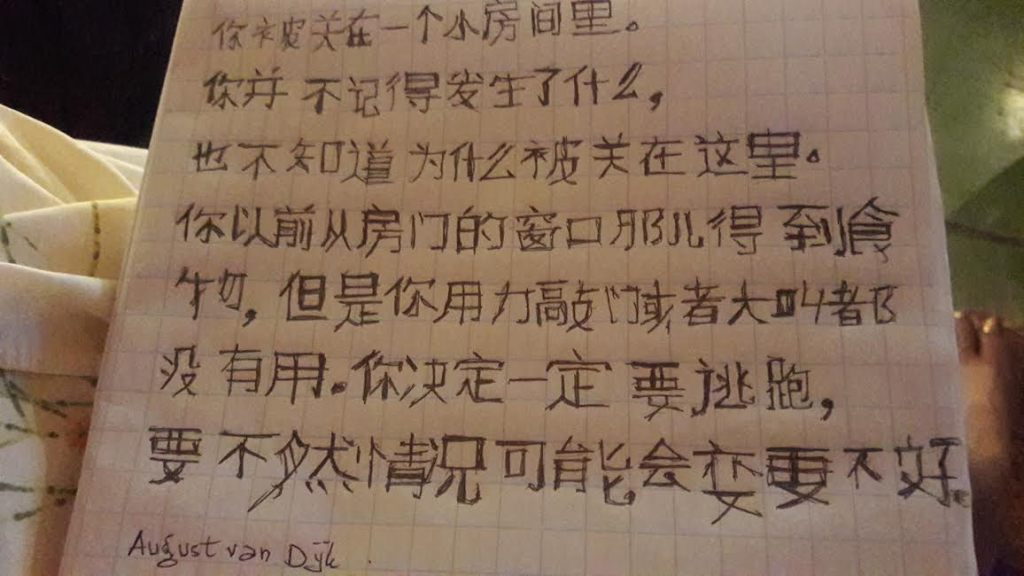 你被关在一个小房间里。
你并不记得发生了什么，
也不知道为什么被关在这里。
你以前从房门的窗口那儿得到食
物，但是你用力敲门或者大叫都
没有用。你决定一定要逃跑，
要不然情况可能会变更不好。
August van Dijk